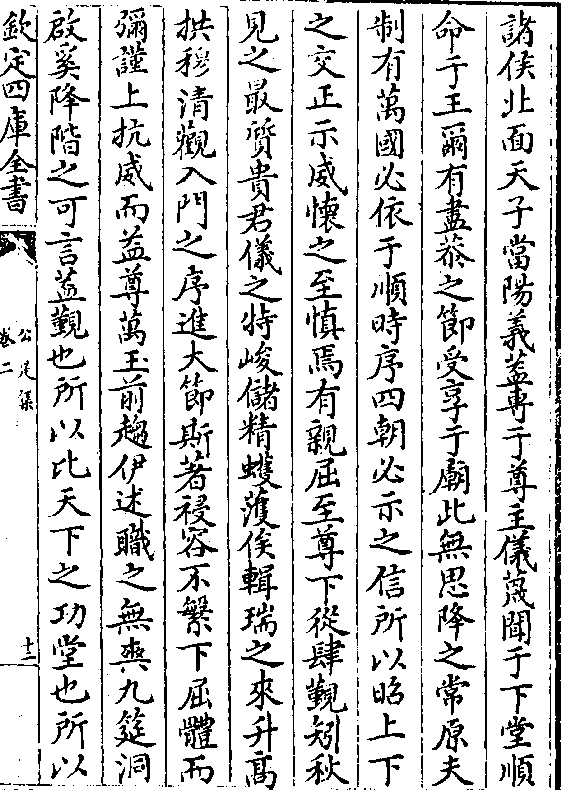 諸侯北面天子當陽義葢専于尊主儀蔑聞于下堂順
命于王爾有盡恭之節受享于廟此無思降之常原夫
制有萬國必依于順時序四朝必示之信所以昭上下
之交正示威懐之至慎焉有親屈至尊下從肆覲矧秋
見之最質貴君儀之特峻儲精蠖濩俟輯瑞之來升高
拱穆清觀入門之序進大節斯著祲容不繁下屈體而
彌謹上抗威而益尊萬玉前趨伊述職之無爽九筵洞
啟奚降階之可言葢覲也所以比天下之功堂也所以
欽定四庫全書
公是集
卷二
十二